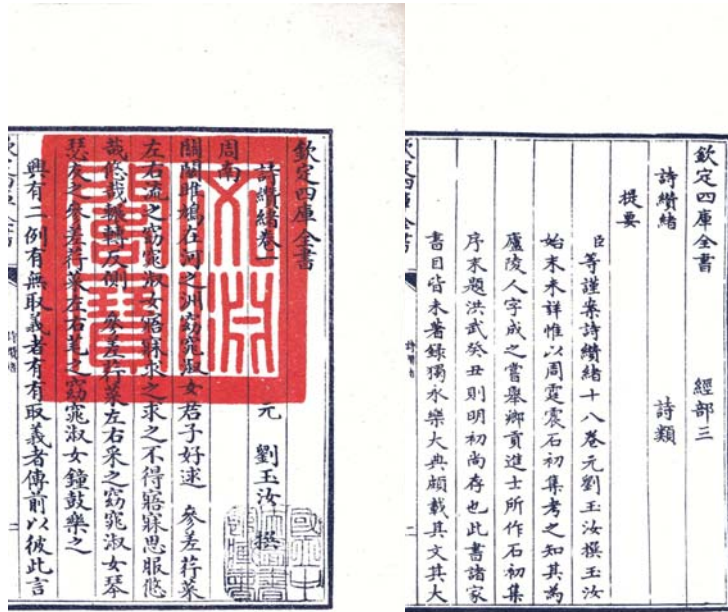 欽定四庫全書 經部三
詩纘緒 詩類
提要
臣等謹案詩纘緒十八卷元劉玉汝撰玉汝
始末未詳惟以周霆震石初集考之知其為
廬陵人字成之嘗舉鄉貢進士所作石初集
序末題洪武癸丑則明初尚存也此書諸家
書目皆未著錄獨永樂大典頗載其文其大
欽定四庫全書
詩纘緒卷一 元 劉玉汝 撰
周南
關關雎鳩在河之洲窈窕淑女君子好逑 參差荇菜
左右流之窈窕淑女寤寐求之求之不得寤寐思服悠
哉悠哉輾轉反側 參差荇菜左右采之窈窕淑女琴
瑟友之參差荇菜左右芼之窈窕淑女鐘鼓樂之
興有二例有無取義者有有取義者傳前以彼此言
文淵閣寶